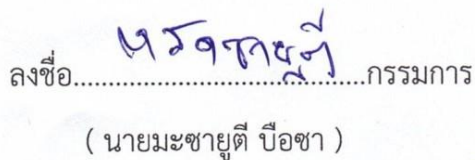 ลงชื่อ.......................................กรรมการ
( นายมะซายูตี บือซา )